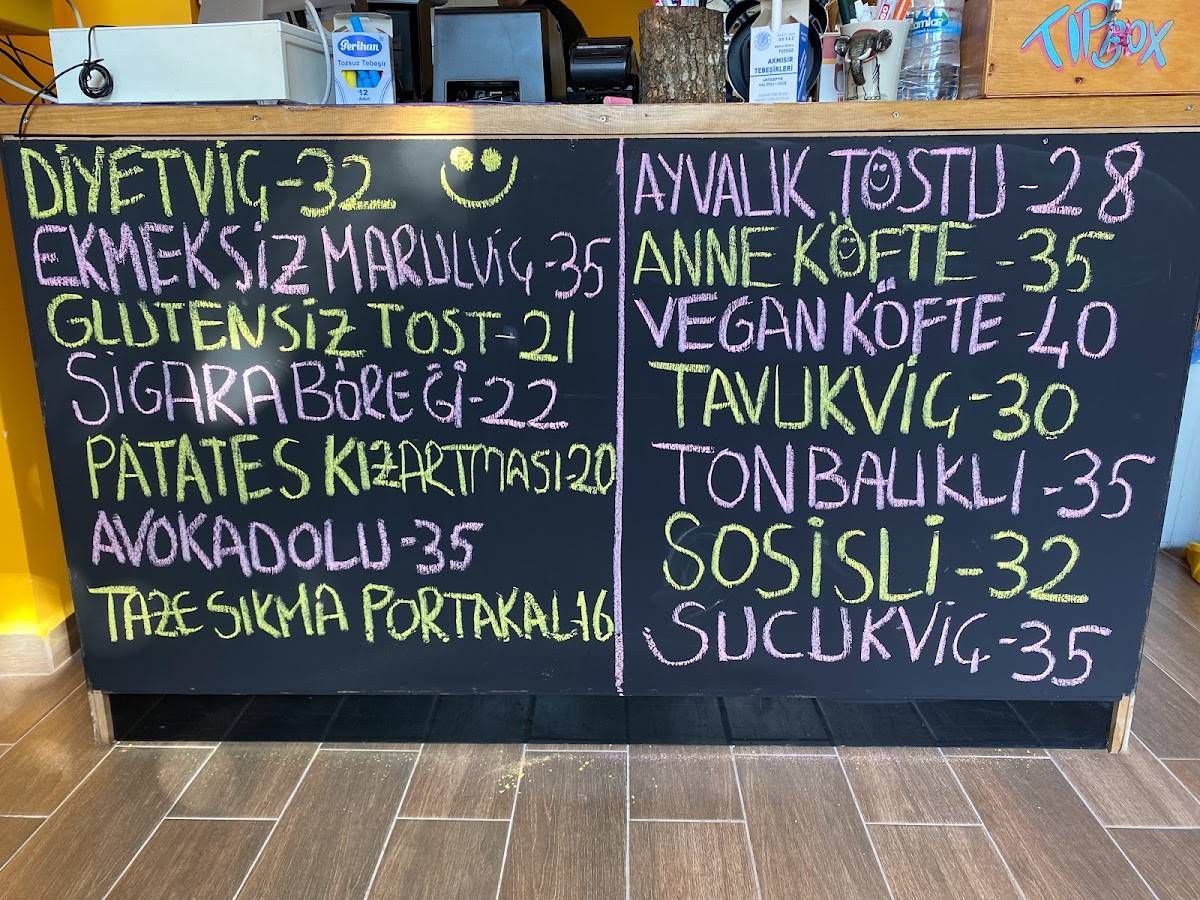 Perihan
Tozsuz Tebeşir
12
BEYAZ
TOZSUZ
AKMISIR
TEBEŞİRLERİ
TIP BOX
DİYETVİÇ-32
EKMEKSİZ MARULVİÇ-35
GLUTENSİZ TOST-21
SİGARA BÖREĞİ-22
PATATES KIZARTMASI-20
AVOKADOLU-35
TAZE SIKMA PORTAKAL-16
AYVALIK TOSTU-28
ANNE KÖFTE-35
VEGAN KÖFTE-40
TAVUKVİÇ-30
TON BALIKLI-35
SOSİSLİ-32
SUCUKVİÇ-35